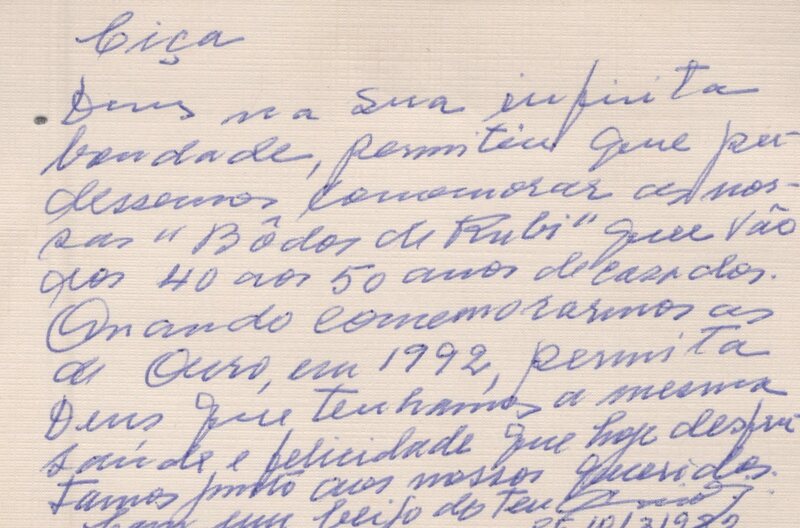 Ciça
Deus na sua infinita
bondade, permitiu que pu-
dessemos comemorar as nos-
sas "Bôdas de Rubi" que vão
dos 40 aos 50 anos de casados.
Quando comemorarmos as
de Ouro, em 1992, permita
Deus que tenhamos a mesma
saúde e felicidade que hoje desfru-
tamos junto aos nossos queridos.
Com um beijo do teu